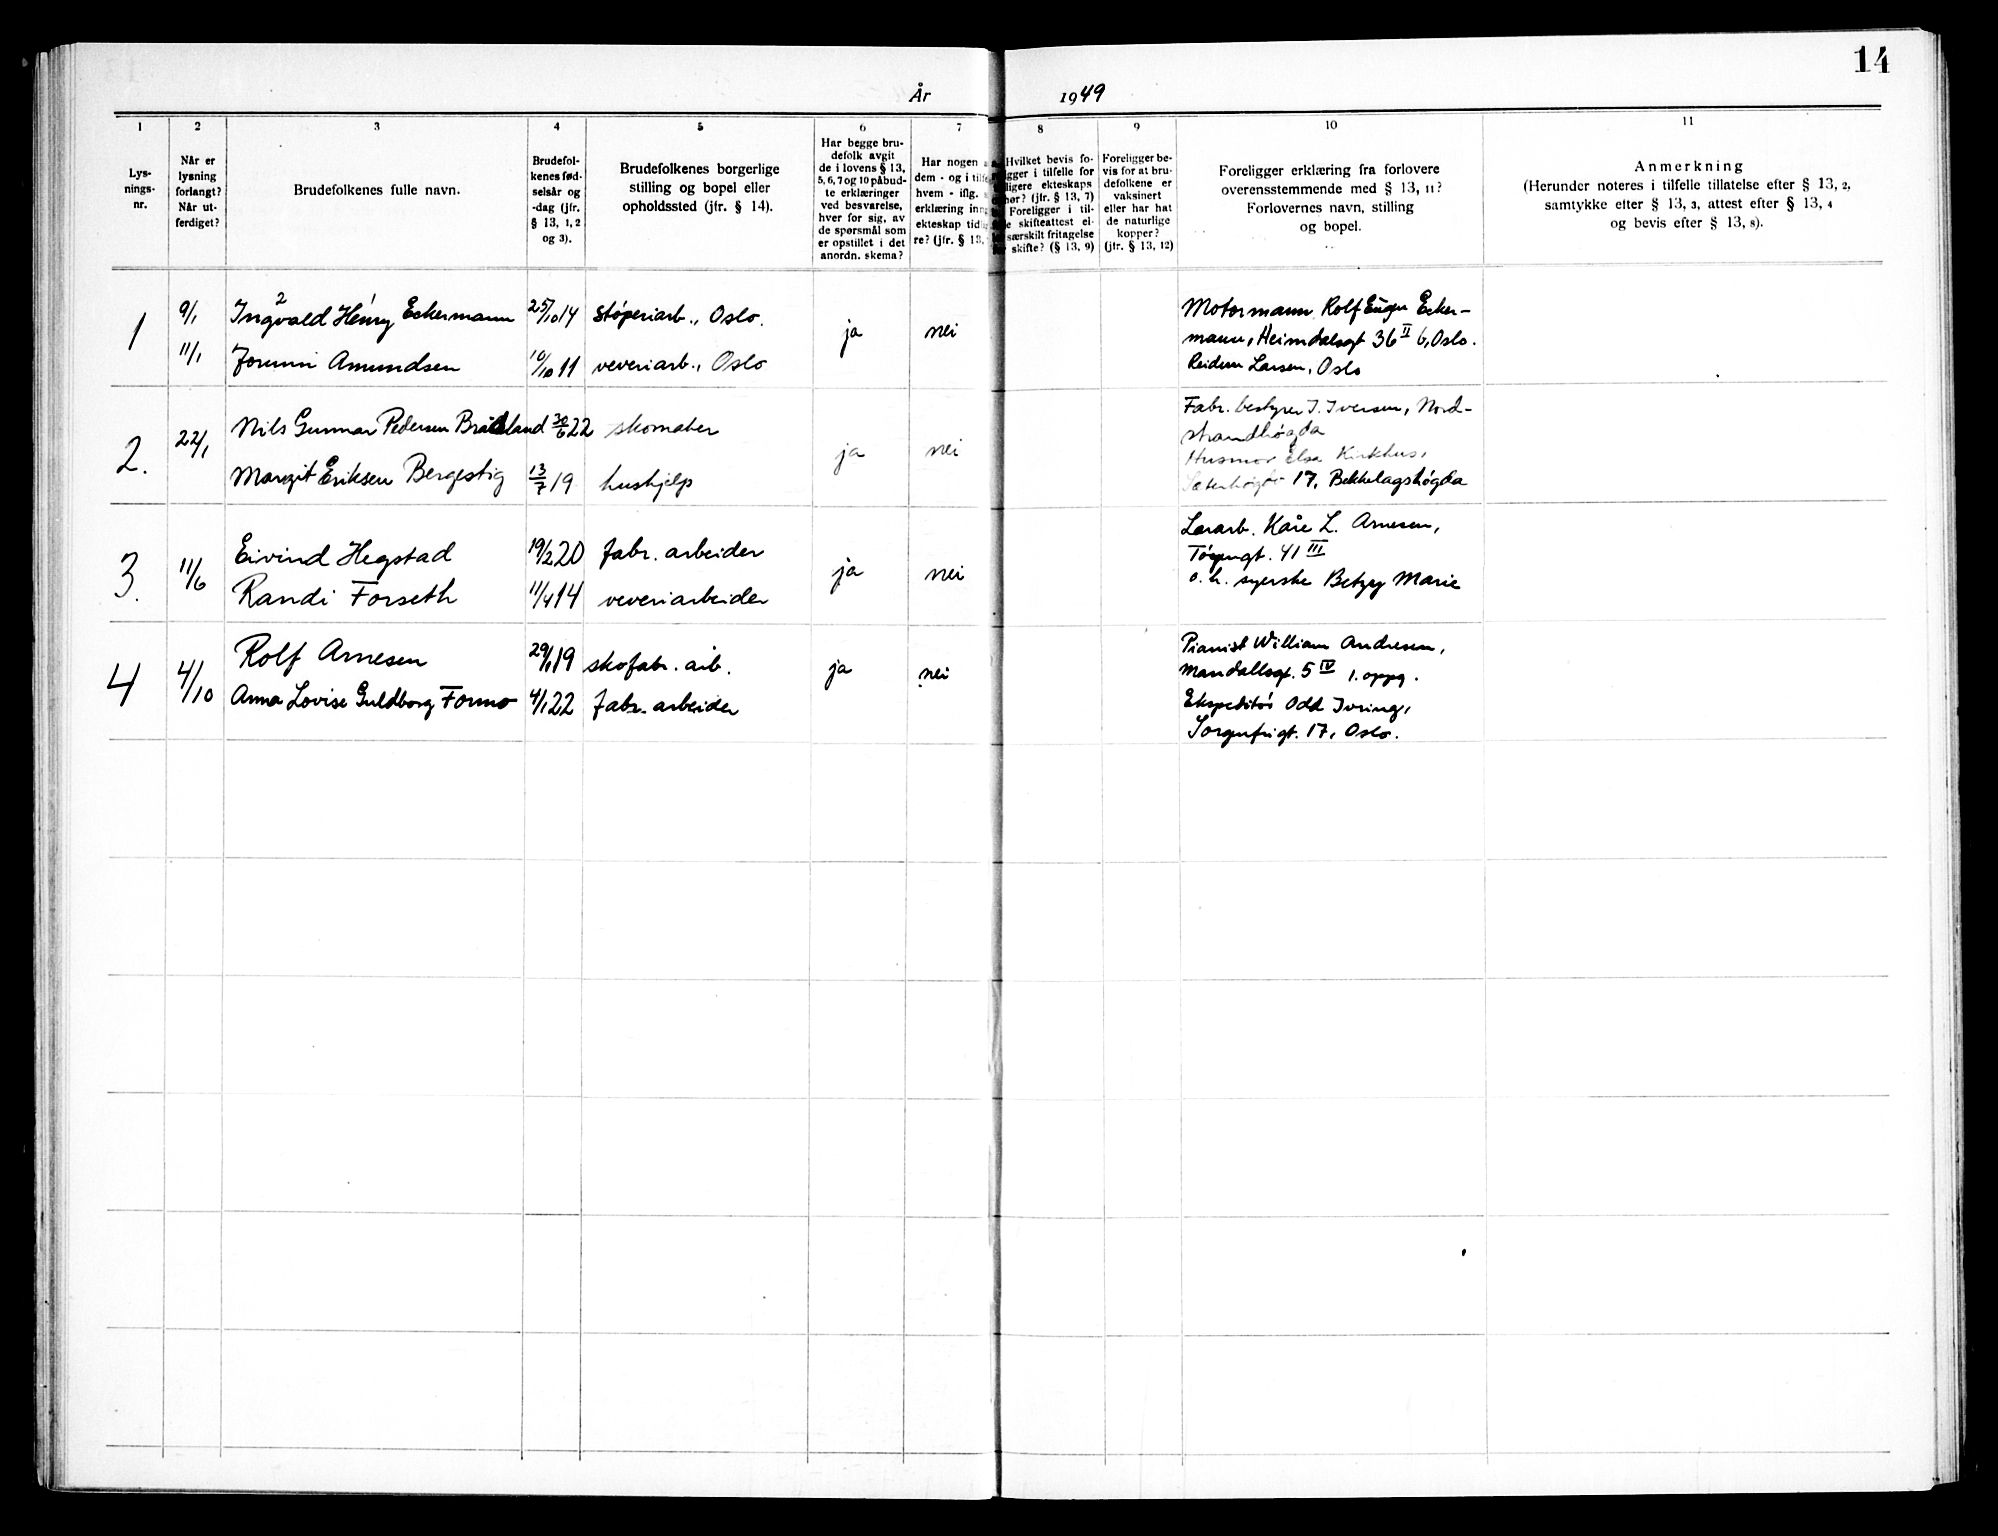 14
År 1949
1 2 3 4 5 6 7 8 9 10 11
Lysnings-
nr.
Når er
lysning
forlangt?
Når ut-
ferdiget?
Brudefolkenes fulle navn.
Brudefol-
kenes fød-
selsår og
-dag (jfr.
§ 13, 1, 2
og 3).
Brudefolkenes borgerlige
stilling og bopel eller
opholdssted (jfr. § 14).
Har begge bru-
defolk avgit
de i lovens § 13,
5, 6, 7 og 10 påbud-
te erklæringer
ved besvarelse,
hver for sig, av
de spørsmål som
er opstillet i det
anordn. skema?
Har nogen
dem - og i
hvem - iflg.
erklæring
ekteskap
re? (jfr. § 13,
Hvilket bevis fo-
ligger i tilfelle for
ligere ekteskaps
hør? (jfr. § 13, 7)
Foreligger i til-
le skifteattest el-
særskilt fritagelse
skifte? (§ 13, 9)
Foreligger be-
vis for at bru-
defolkene er
vaksinert
eller har hat
de naturlige
kopper?
(jfr. § 13, 12)
Foreligger erklæring fra forlovere
overensstemmende med § 13, 11?
Forlovernes navn, stilling
og bopel.
Anmerkning
(Herunder noteres i tilfelle tillatelse efter § 13, 2,
samtykke efter § 13, 3, attest efter § 13, 4
og bevis efter § 13, 8).
1 9/1 Ingvald Henry Eckermann 25/10 14 Støperiarb., Oslo. ja nei
11/1 Jorunn Amundsen 10/10 11 veveriarb., Oslo
Motormann Rolf Eugen Ecker-
mann, Heimdalsgt 36 II 6, Oslo.
Reidun Larsen, Oslo
2. 22/1 Nils Gunnar Pedersen 30/6 22 skomaker ja nei
Margit Eriksen Bergestig 13/7 19 hushjelp
Fabr. bestyrer J. Iversen, Nord-
strandhøgda
Husmor Elsa Kirkhus,
17, Bekkelagshøgda
3. 11/6 Eivind Hegstad 19/2 20 fabr. arbeider ja nei
Randi Forseth 11/4 14 veveriarbeider
Lærarb. Kåre L. Arnesen,
41 III
o. h. syerske Betzy Marie
4 4/10 Rolf Arnesen 29/1 19 skofabr. arb. ja nei
Anna Lovise Guldborg Formo 4/1 22 fabr. arbeider
Pianist William Andresen,
Mandallsgt. 5 IV 1. oppg.
Ekspeditør Odd Ivring,
Sorgenfrigt. 17, Oslo.